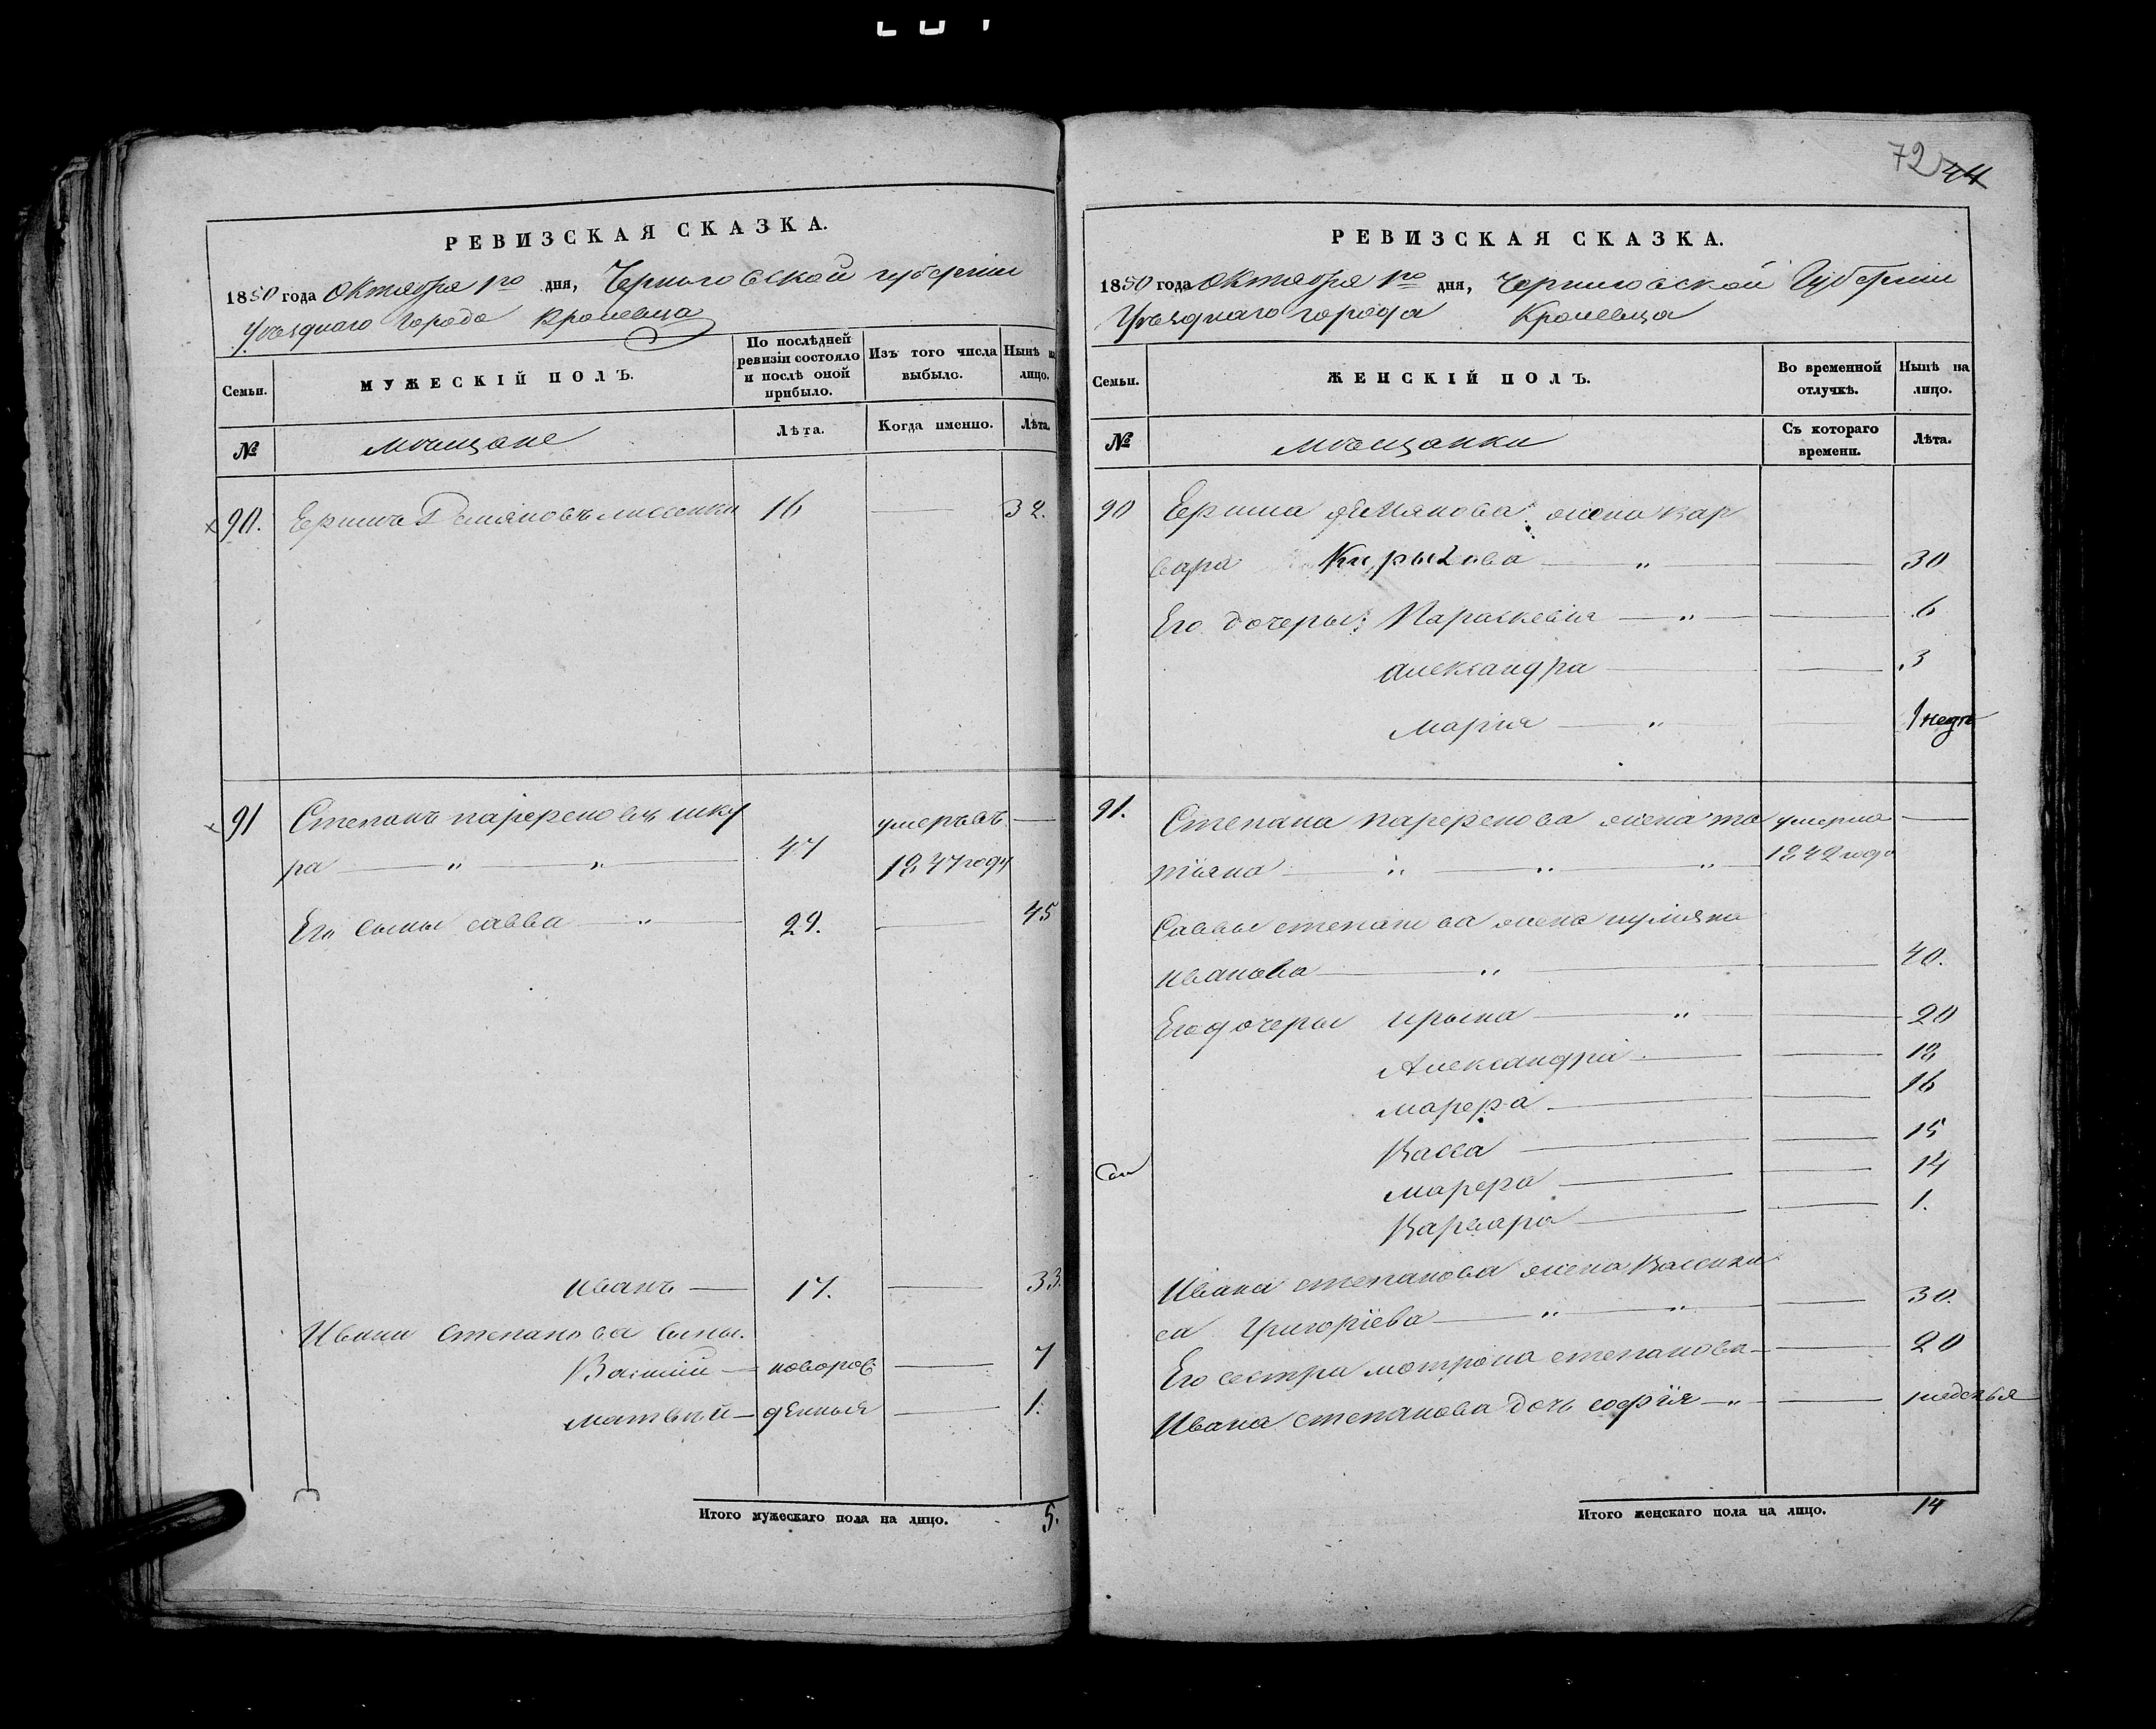 РЕВИЗСКАЯ СКАЗКА.
1850 года Октября 1го дня, Черниговской губернии
Уѣзднаго Города Кролевца
Семьи.
МУЖЕСКІЙ ПОЛЪ.
По послѣдней ревизіи состояло и послѣ оной прибыло.
Изъ того числа выбыло.
Нынѣ на лицо.
№
мѣщане
Лѣта.
Когда именно.
Лѣта.
90. 16 32.
91 Степанъ парфеновъ шку умеръ въ
ра 47 1847 году
Его сыны савва 29. 45
иванъ 17. 33.
Ивана степанова сыны.
Василий новорож 7
матвѣй денныя 1.
Итого мужескаго пола на лицо. 5.
72 44
РЕВИЗСКАЯ СКАЗКА.
1850 года Октября 1го дня, Черниговской Губернии
Уѣзднаго города Кролевца
Семьи.
ЖЕНСКІЙ ПОЛЪ.
Во временной отлучкѣ.
Нынѣ на лицо.
№
мѣщанки
Съ котораго времени.
Лѣта.
90 демянова жена вар
вара 30
Его дочеры: Параскевия 6
александра 3
мария 1 недѣ
91. Степана парфенова жена та умерла
тїяна 1842 года
Саввы степанова жена
иванова 40.
Его дочеры ирына 20
Александра 18
марфа 16
Васса 15
марфа 14
Варвара 1.
Ивана степанова жена Василы
са Григорїева 30.
Его сестра мотрона степанова 20
Ивана степанова дочь софїя
Итого женскаго пола на лицо. 14